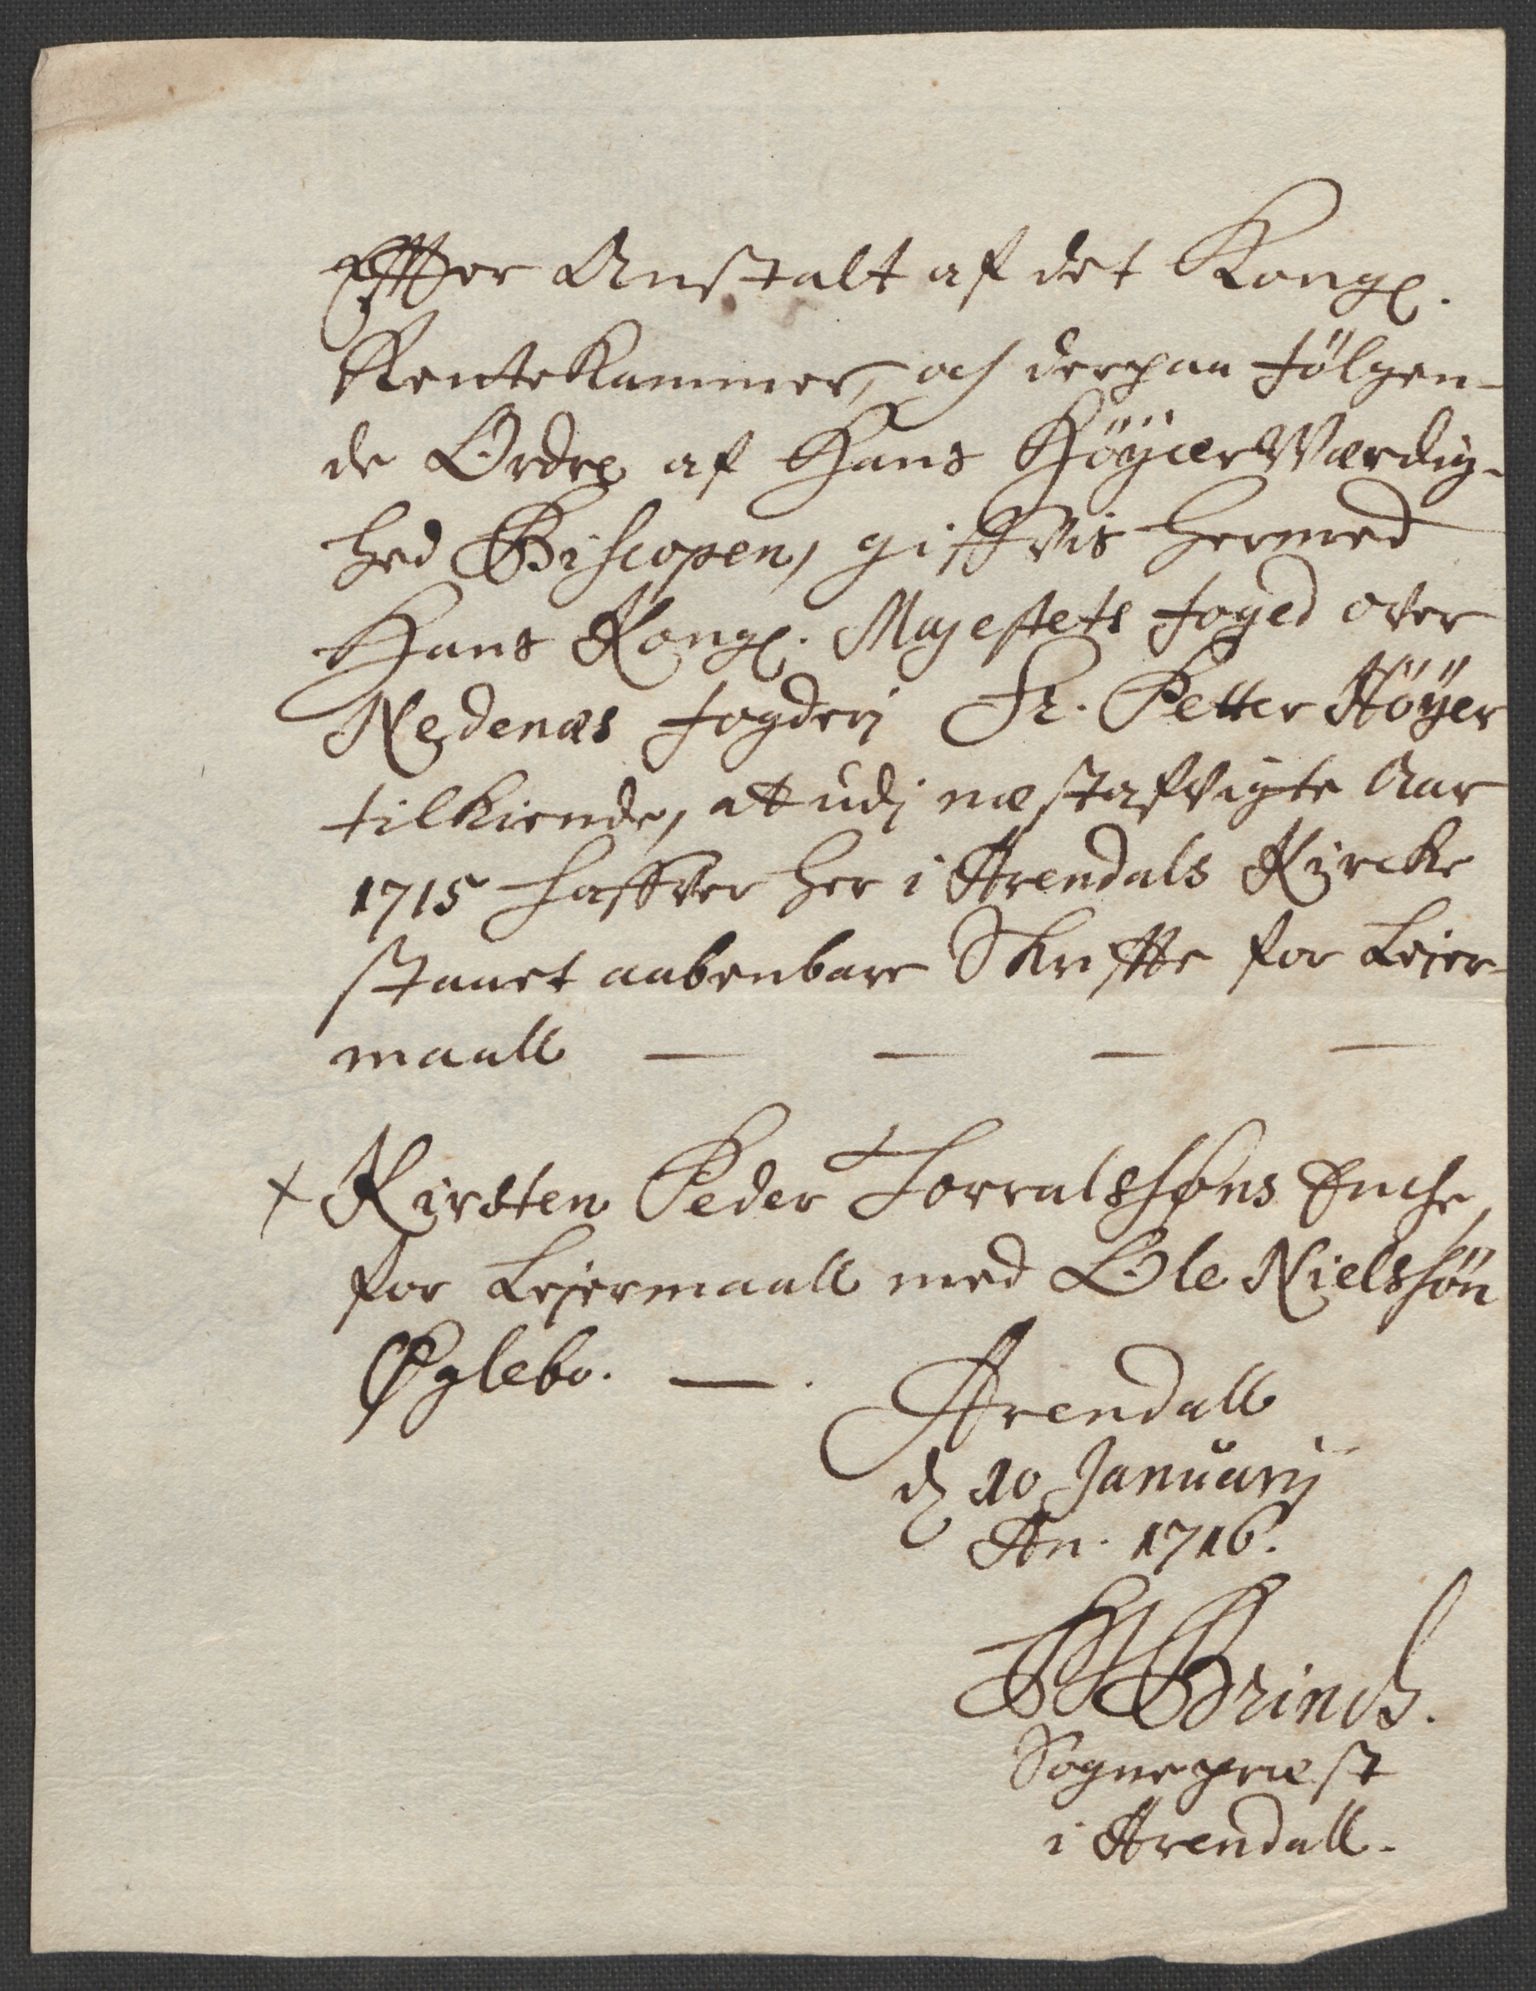 Effter Anstalt af det Kongl.
RenteKammer, och derpaa følgen-
de Ordre af Hans HøyærWærdig-
hed Biscopen, giffvis hermed
Hans Kongl. Majestets foged over
Nedenæs fogderj Sr. Petter Høÿer
tilkiende, at udj næstafvigte Aar
1715 haffver her i Arendals Kircke
staaet aabenbare Skriffte for Leier-
maall — — — —
+ Kirsten Peder Torralssøns Encke,
for Leiermaall med Ole Nielssøn
Øglebo. — .
Arendall
d 10 Januarij
An. 1716.
Brinch.
Sognepræst
i Arendall.